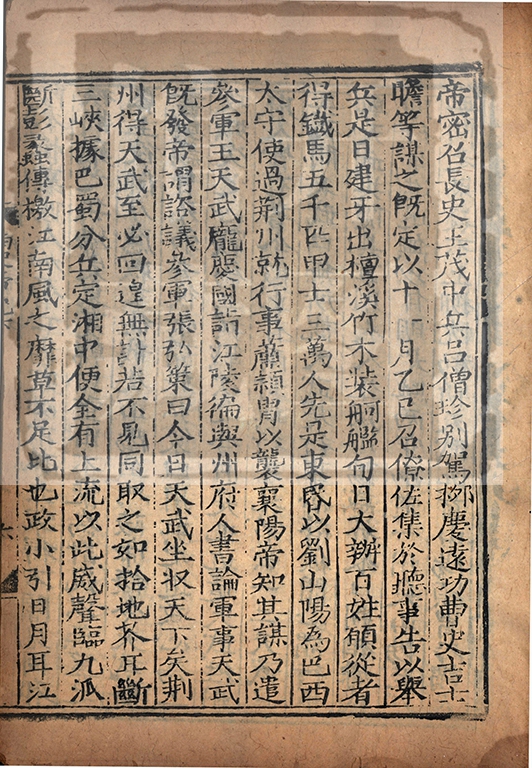 帝密召長史王茂中兵呂僧珍別駕栁慶遠功曹史吉士
瞻等謀之旣定以十一月乙巳召僚佐集於聽事告以舉
兵是日建牙出檀溪竹木裝舸艦旬日大辦百姓願從者
得鐵馬五千匹甲士三萬人先是東昏以劉山陽為巴西
太守使過荆州就行事蕭穎冑以襲襄陽帝知其謀乃遣
參軍王天武龎慶國詣江陵徧與州府人書論軍事天武
旣發帝謂諮議參軍張弘策曰今日天武坐収天下矣荆
州得天武至必回遑無計若不見同取之如拾地芥耳斷
三峽據巴蜀分兵定湘中便全有上流以此威聲臨九派
斷彭蠡傳檄江南風之靡草不足比也政小引日月耳江
六